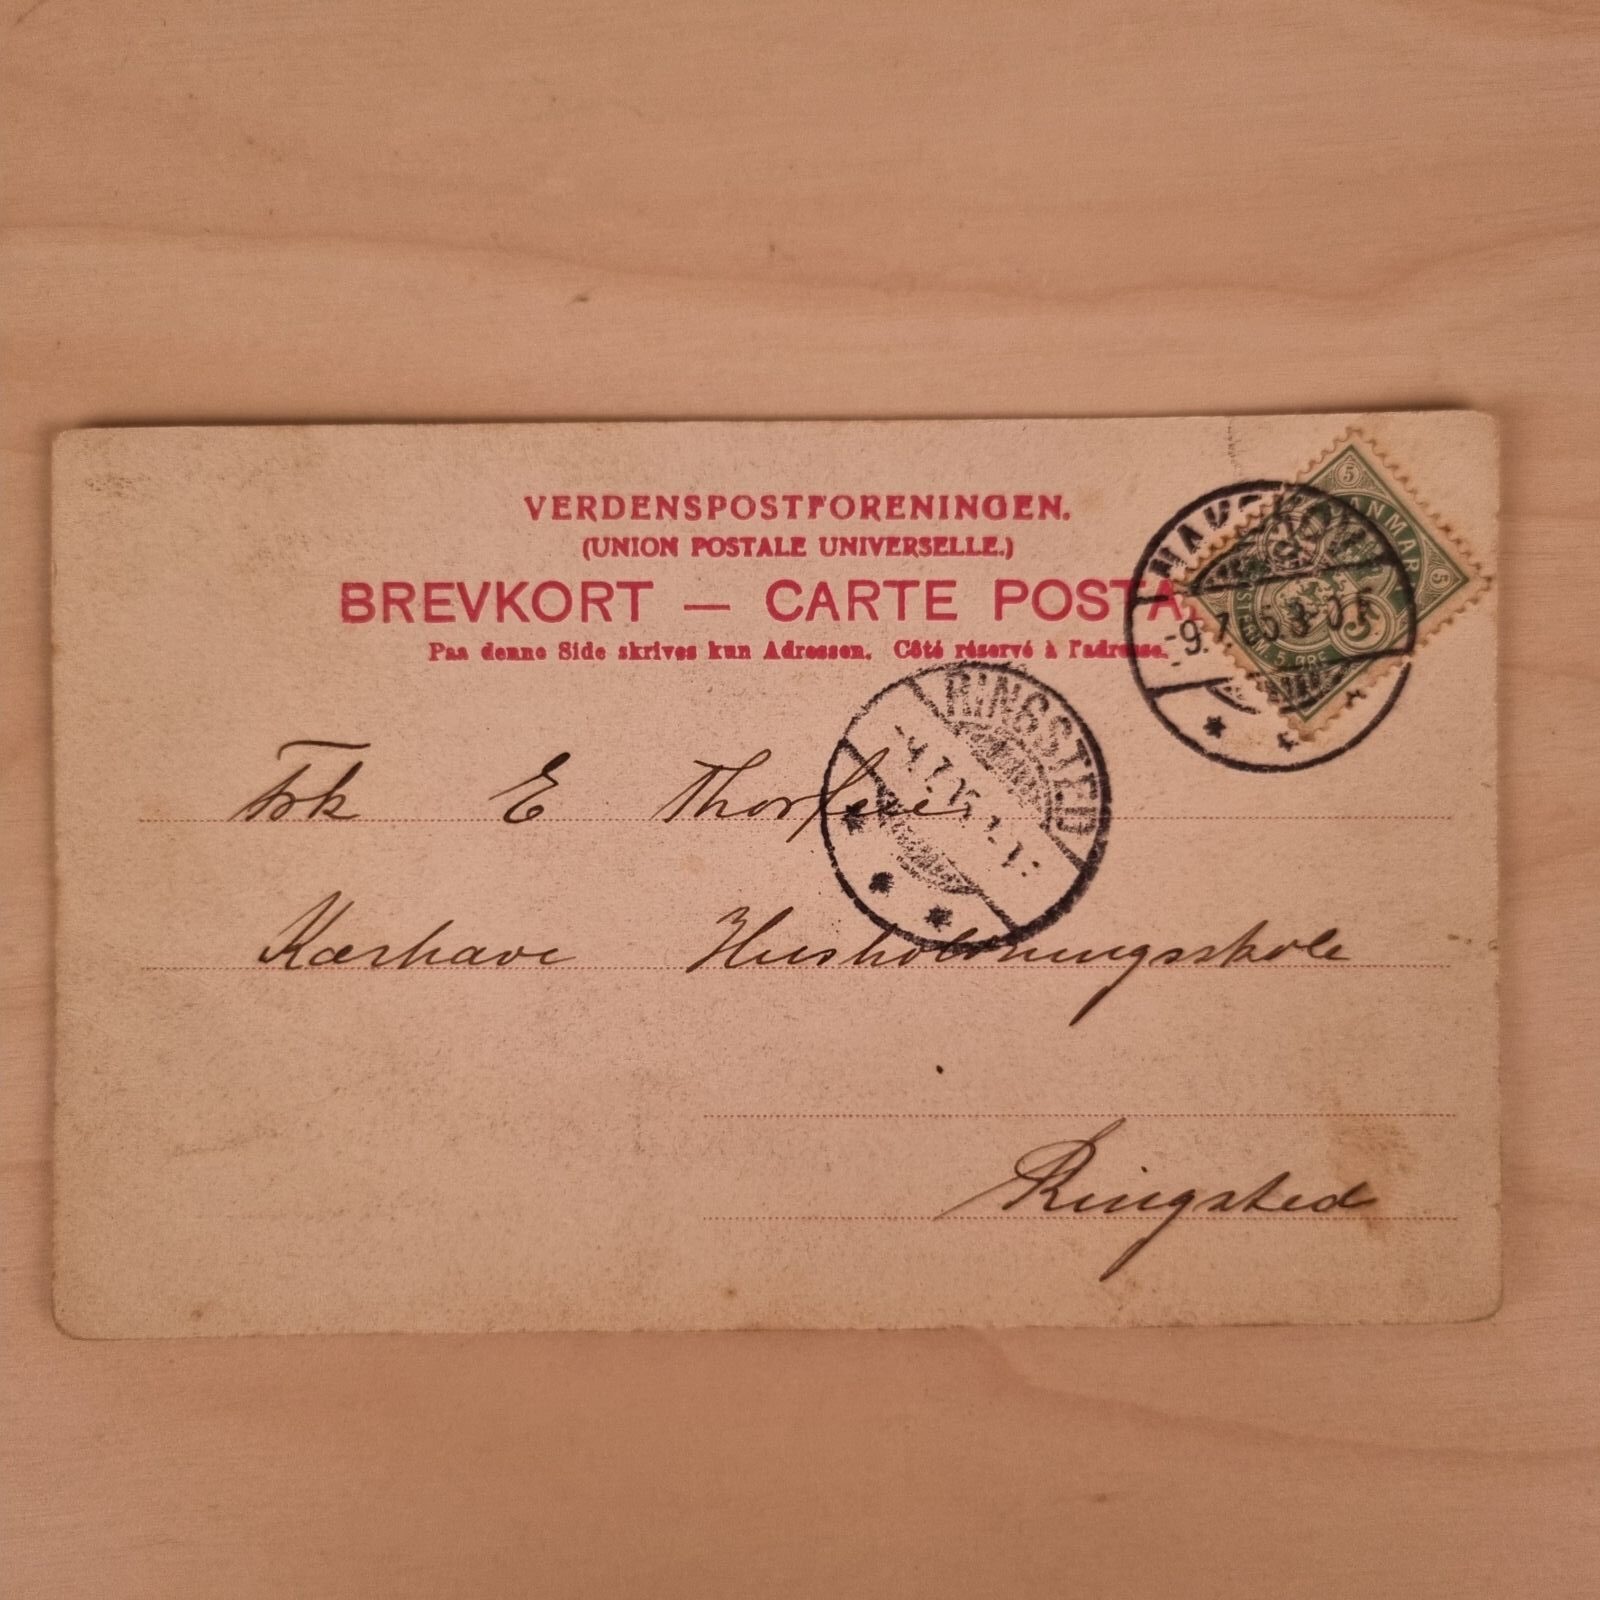 VERDENSPOSTFORENINGEN.
(UNION POSTALE UNIVERSELLE.)
BREVKORT — CARTE POSTA
Paa denne Side skrives kun Adressen. Côté réservé à l'adresse.
DANMARK
5
5
5 ØRE
RINGSTED
Frk E
Kærhave Husholdningsskole
Ringsted